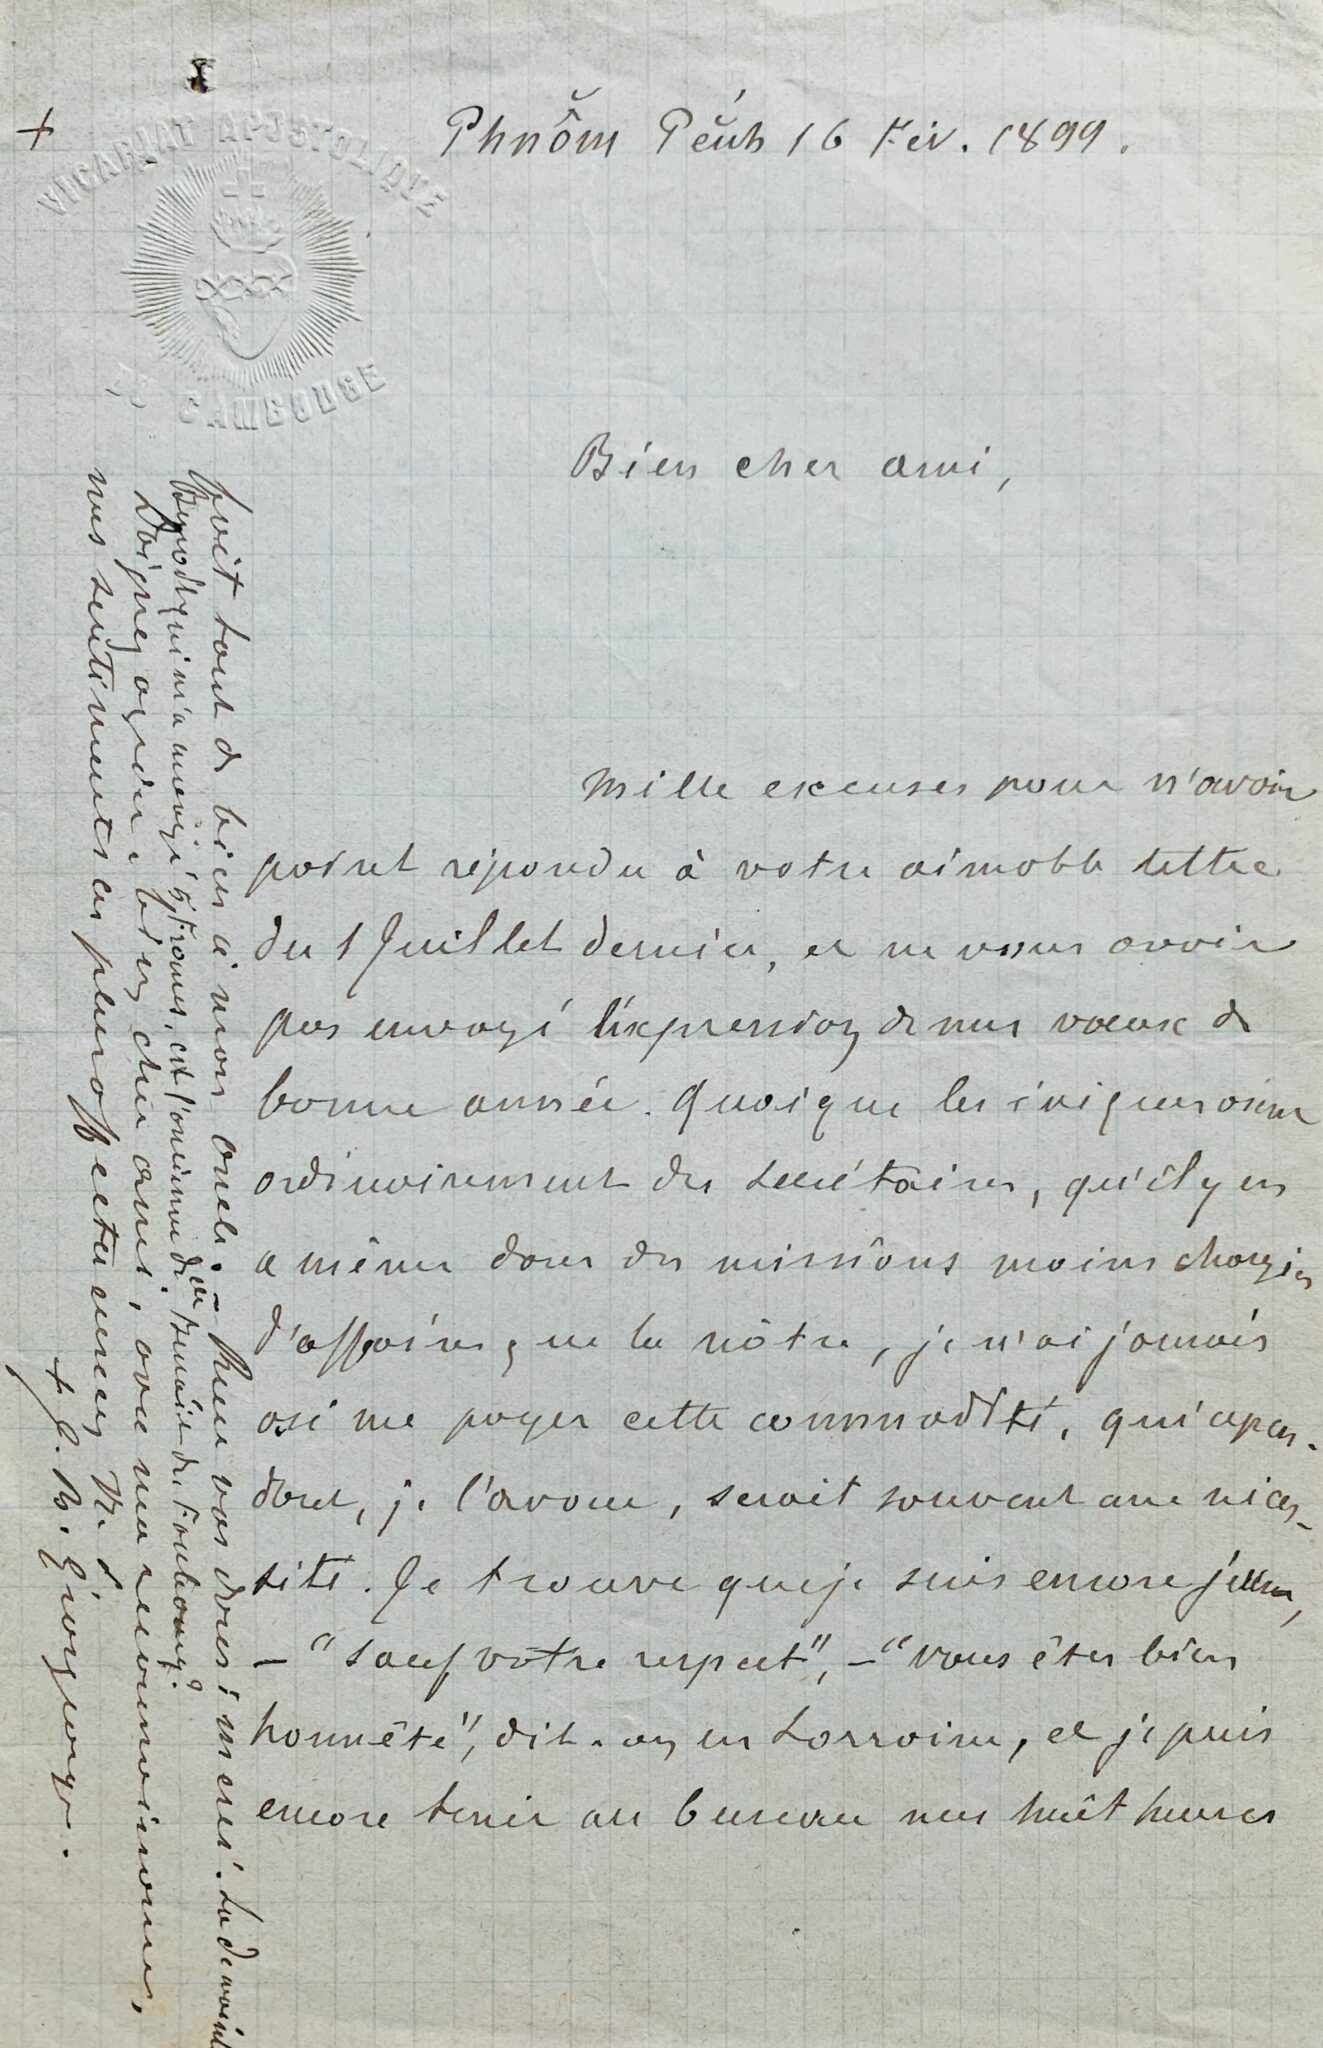 +
VICARIAT APOSTOLIQUE
DU CAMBODGE
Phnôm Pénh 16 Fév. 1899.
Bien cher ami,
Mille excuses pour n'avoir
point répondu à votre aimable lettre
du 1 Juillet dernier, et ne vous avoir
pas envoyé l'éxpression de mes vœux de
bonne année. Quoique les évêques aient
ordinairement des secrétaires, qu'il y en
a même dans des missions moins chargées
d'affaires que la nôtre, je n'ai jamais
osé me payer cette commodité, qui cepen-
dant, je l'avoue, serait souvent une néces-
sité. Je trouve que je suis encore jeune,
– "sauf votre respect", – "vous êtes bien
honnête", dit-on en Lorraine, et je puis
encore tenir au bureau mes huit heures
fait tout de bien à mon oncle. – Pour vos dons: merci. La demoiselle
qui m'a envoyé 5 francs, est l'ancienne de
Daignez agréer, bien cher ami, avec ma reconnaissance,
mes sentiments les plus affectueux en N. S.
+ J. B. Grosgeorge.